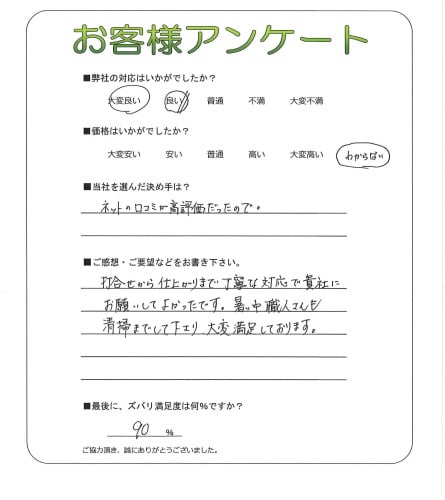 お客様アンケート
■弊社の対応はいかがでしたか?
大変良い 良い 普通 不満 大変不満
■価格はいかがでしたか?
大変安い 安い 普通 高い 大変高い わからない
■当社を選んだ決め手は?
ネットの口コミが高評価だったので。
■ご感想・ご要望などをお書き下さい。
打合せから仕上がりまで丁寧な対応で貴社に
お願いしてよかったです。暑い中職人さんも
清掃までして下さり、大変満足しております。
■最後に、ズバリ満足度は何%ですか?
90 %
ご協力頂き、誠にありがとうございました。